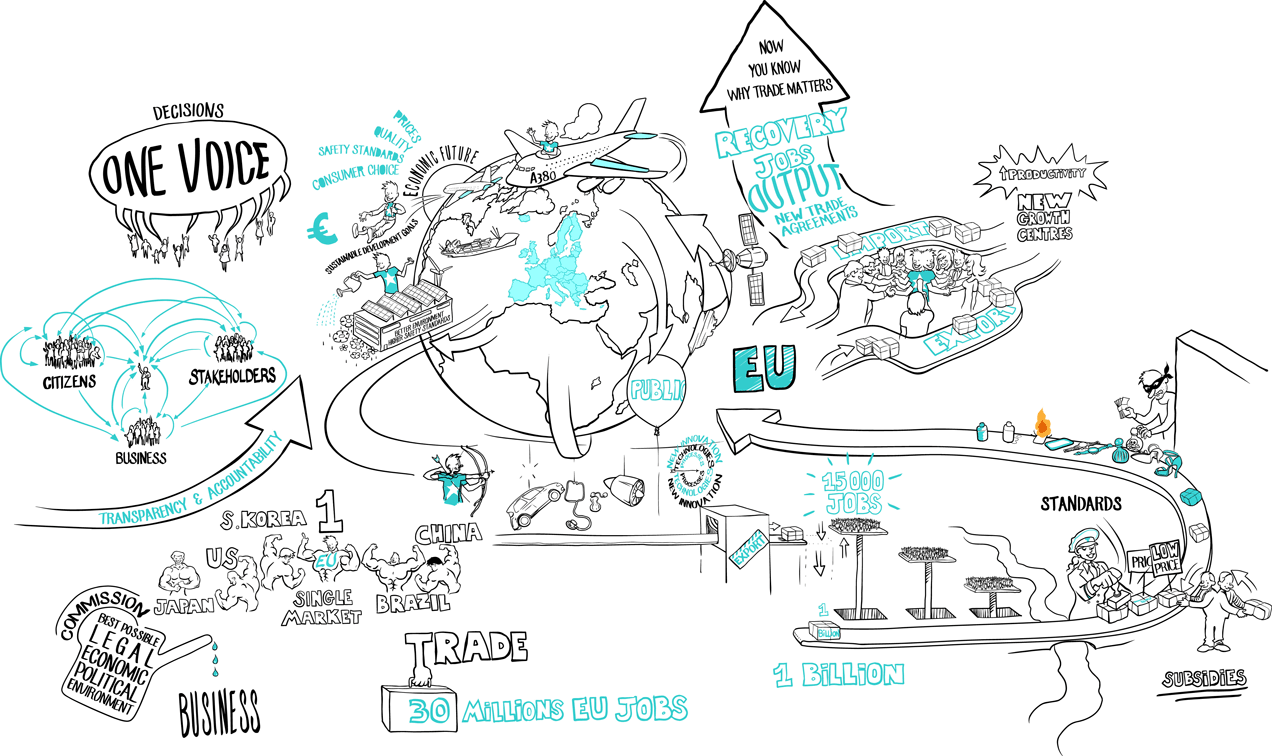 DECISIONS
ONE VOICE
CITIZENS
STAKEHOLDERS
BUSINESS
TRANSPARENCY & ACCOUNTABILITY
PRICES
QUALITY
SAFETY STANDARDS
CONSUMER CHOICE
ECONOMIC FUTURE
€
SUSTAINABLE DEVELOPMENT GOALS
BETTER ENVIRONMENT
HIGHER SAFETY STANDARDS
A380
NOW
YOU KNOW
WHY TRADE MATTERS
RECOVERY
JOBS
OUTPUT
NEW TRADE
AGREEMENTS
IMPORT
EXPORT
PRODUCTIVITY
NEW
GROWTH
CENTRES
EU
PUBLI
NEW INNOVATION
TECHNOLOGIES
TECHNOLOGIES
NEW INNOVATION
EXPORT
15000
JOBS
STANDARDS
PRIC
LOW
PRICE
SUBSIDIES
1
BILLION
1 BILLION
S.KOREA
1
CHINA
US
EU
JAPAN
SINGLE
MARKET
BRAZIL
COMMISSION
BEST POSSIBLE
LEGAL
ECONOMIC
POLITICAL
ENVIRONMENT
BUSINESS
TRADE
30 MILLIONS EU JOBS